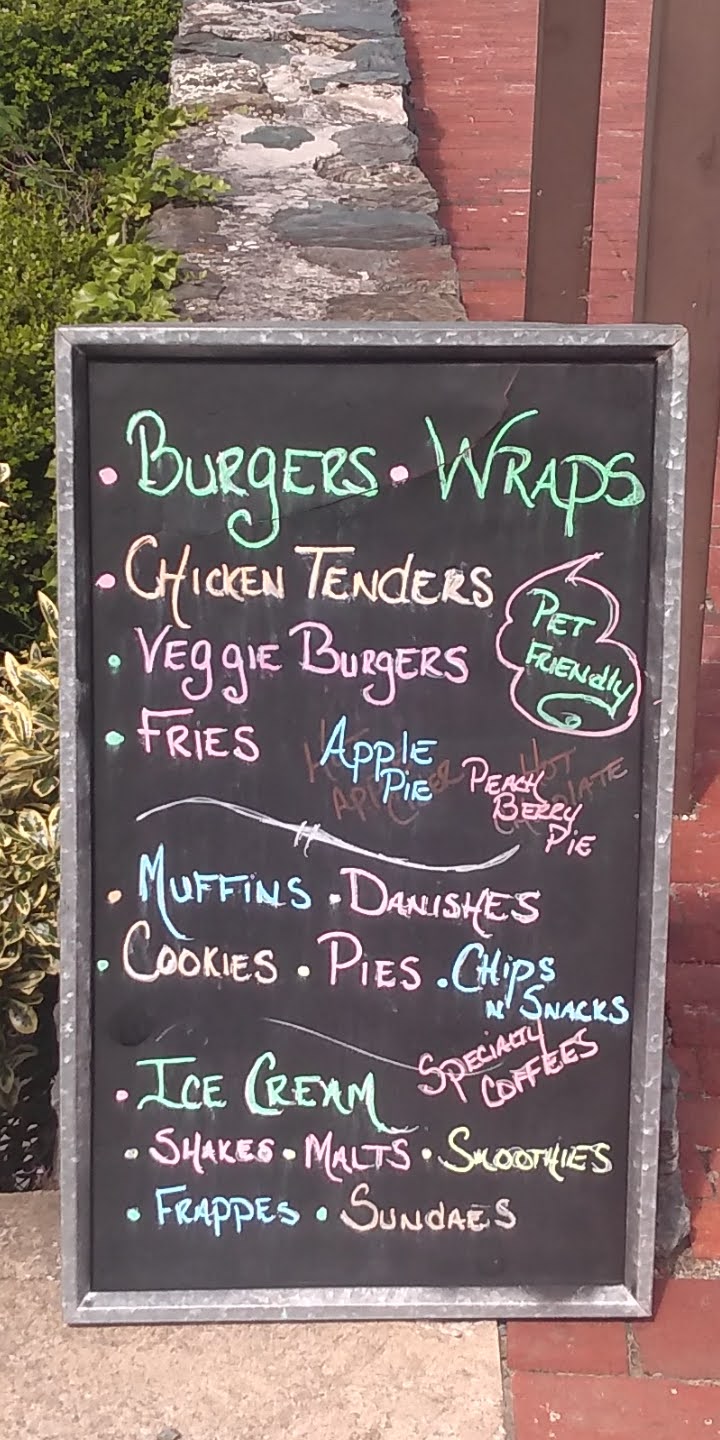 • Burgers • Wraps
• Chicken Tenders
Pet
Friendly
• Veggie Burgers
• Fries
Apple
Pie
Peach
Berry
Pie
Hot
Apple Cider
Hot
Chocolate
• Muffins • Danishes
• Cookies • Pies • Chips
n' Snacks
Specialty
Coffees
• Ice Cream
• Shakes • Malts • Smoothies
• Frappes • Sundaes